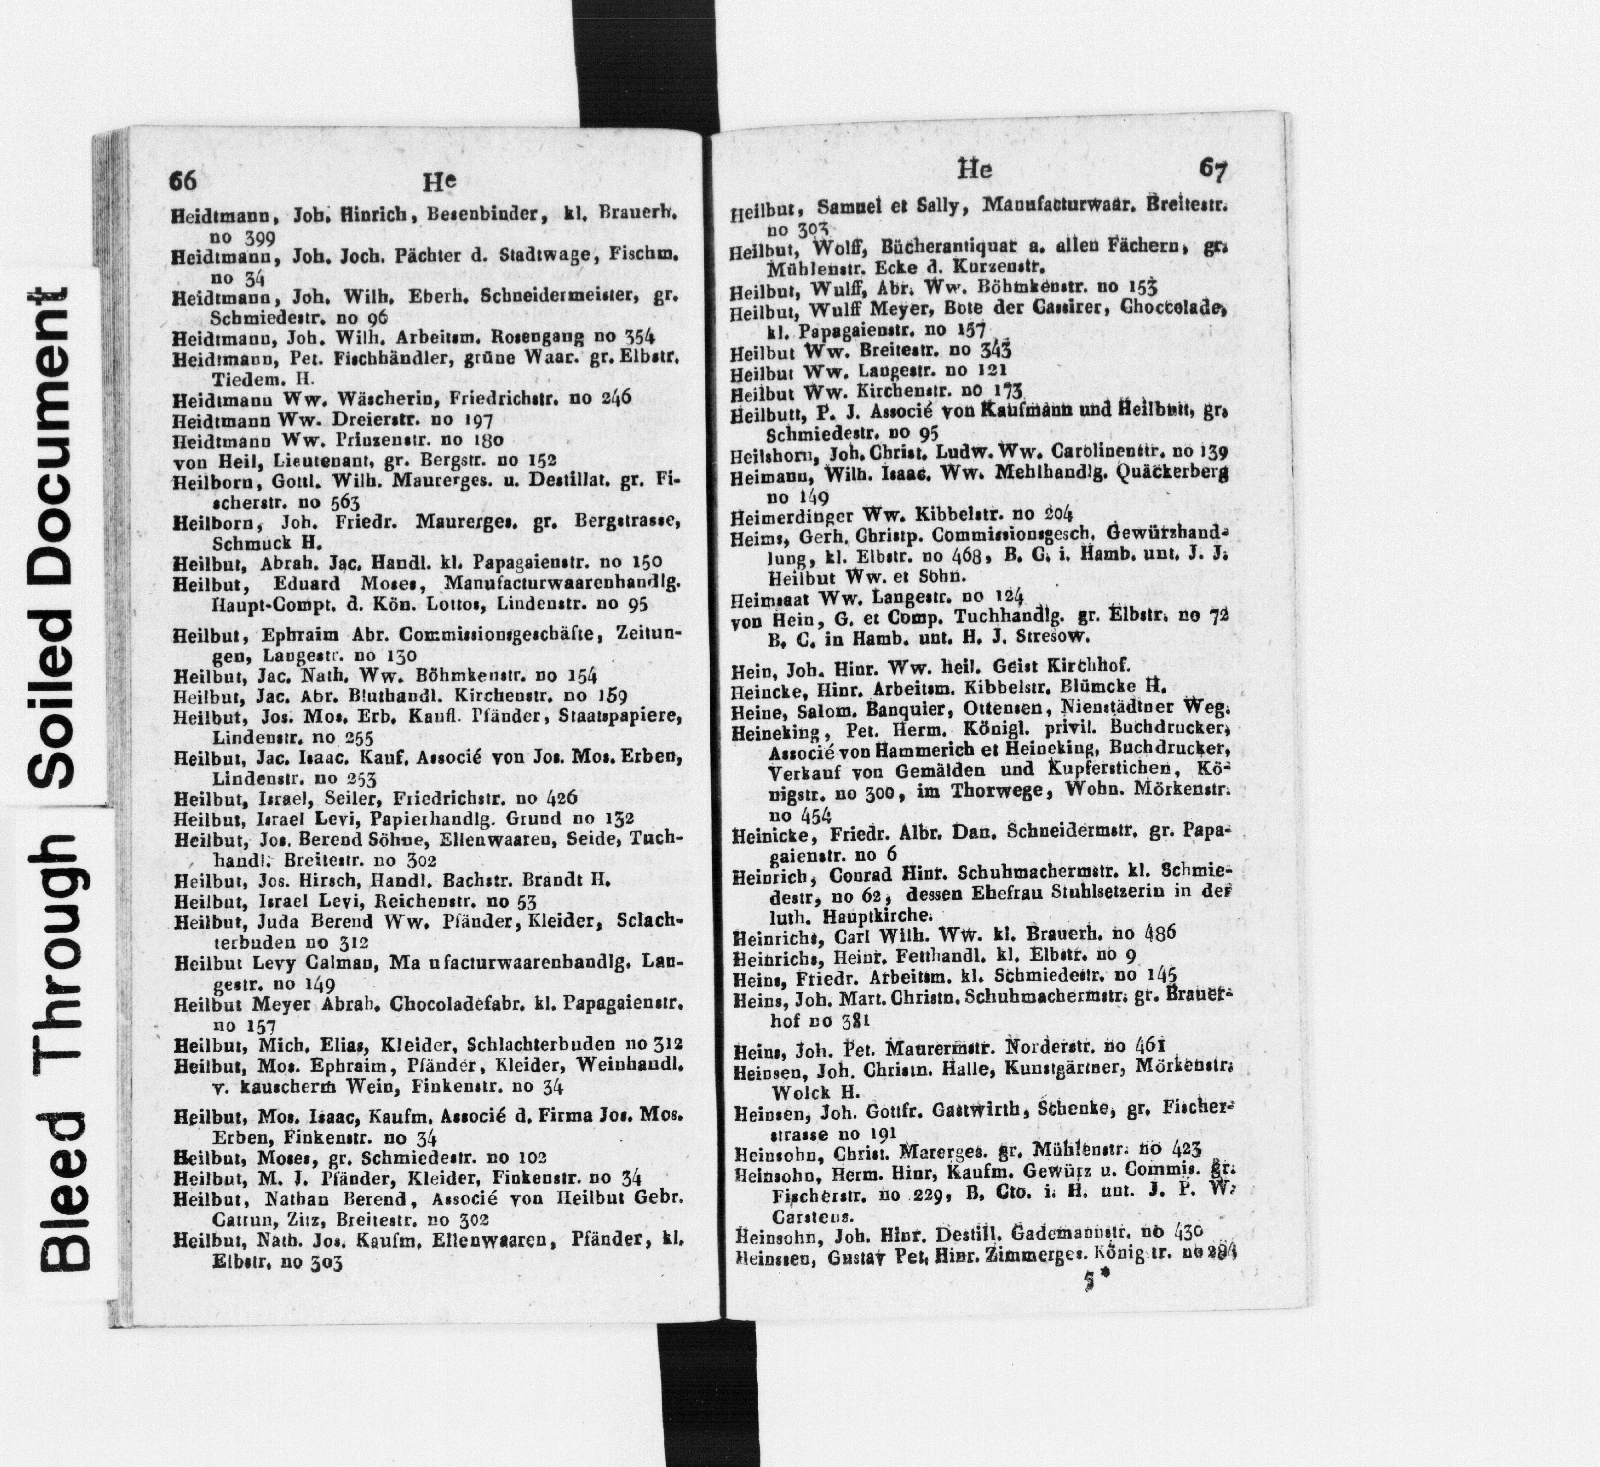 66
He
Heidtmann, Joh. Hinrich, Besenbinder, kl. Brauerh.
no 399
Heidtmann, Joh. Joch. Pächter d. Stadtwage, Fischm.
no 34
Heidtmann, Joh. Wilh. Eberh. Schneidermeister, gr.
Schmiedestr. no 96
Heidtmann, Joh. Wilh. Arbeitsm. Rosengang no 354
Heidtmann, Pet. Fischhändler, grüne Waar. gr. Elbstr.
Tiedem. H.
Heidtmann Ww. Wäscherin, Friedrichstr. no 246
Heidtmann Ww. Dreierstr. no 197
Heidtmann Ww. Prinzenstr. no 180
von Heil, Lieutenant, gr. Bergstr. no 152
Heilborn, Gottl. Wilh. Maurerges. u. Destillat. gr. Fi-
scherstr. no 563
Heilborn, Joh. Friedr. Maurerges. gr. Bergstrasse,
Schmuck H.
Heilbut, Abrah. Jac. Handl. kl. Papagaienstr. no 150
Heilbut, Eduard Moses, Manufacturwaarenhandlg.
Haupt-Compt. d. Kön. Lottos, Lindenstr. no 95
Heilbut, Ephraim Abr. Commissionsgeschäfte, Zeitun-
gen, Langestr. no 130
Heilbut, Jac. Nath. Ww. Böhmkenstr. no 154
Heilbut, Jac. Abr. Bluthandl. Kirchenstr. no 159
Heilbut, Jos. Mos. Erb. Kaufl. Pfänder, Staatspapiere,
Lindenstr. no 255
Heilbut, Jac. Isaac. Kauf. Associé von Jos. Mos. Erben,
Lindenstr. no 253
Heilbut, Israel, Seiler, Friedrichstr. no 426
Heilbut, Israel Levi, Papierhandlg. Grund no 132
Heilbut, Jos. Berend Söhne, Ellenwaaren, Seide, Tuch-
handl. Breitestr. no 302
Heilbut, Jos. Hirsch, Handl. Bachstr. Brandt H.
Heilbut, Israel Levi, Reichenstr. no 53
Heilbut, Juda Berend Ww. Pfänder, Kleider, Sclach-
terbuden no 312
Heilbut Levy Calman, Ma ufacturwaarenhandlg. Lan-
gestr. no 149
Heilbut Meyer Abrah. Chocoladefabr. kl. Papagaienstr.
no 157
Heilbut, Mich. Elias, Kleider, Schlachterbuden no 312
Heilbut, Mos. Ephraim, Pfänder, Kleider, Weinhandl.
v. kauscherm Wein, Finkenstr. no 34
Heilbut, Mos. Isaac, Kaufm. Associé d. Firma Jos. Mos.
Erben, Finkenstr. no 34
Heilbut, Moses, gr. Schmiedestr. no 102
Heilbut, M. J. Pfänder, Kleider, Finkenstr. no 34
Heilbut, Nathan Berend, Associé von Heilbut Gebr.
Cattun, Zitz, Breitestr. no 302
Heilbut, Nath. Jos. Kaufm. Ellenwaaren, Pfänder, kl.
Elbstr. no 303
He
67
Heilbut, Samuel et Sally, Manufacturwaar. Breitestr.
no 303
Heilbut, Wolff, Bücherantiquar a. allen Fächern, gr.
Mühlenstr. Ecke d. Kurzenstr.
Heilbut, Wulff, Abr. Ww. Böhmkenstr. no 153
Heilbut, Wulff Meyer, Bote der Cassirer, Choccolade,
kl. Papagaienstr. no 157
Heilbut Ww. Breitestr. no 343
Heilbut Ww. Langestr. no 121
Heilbut Ww. Kirchenstr. no 173
Heilbutt, P. J. Associé von Kaufmann und Heilbutt, gr.
Schmiedestr. no 95
Heilshorn, Joh. Christ. Ludw. Ww. Carolinenstr. no 139
Heimann, Wilh. Isaac. Ww. Mehlhandlg. Quäckerberg
no 149
Heimerdinger Ww. Kibbelstr. no 204
Heims, Gerh. Christp. Commissionsgesch. Gewürzhand-
lung, kl. Elbstr. no 468, B. C. i. Hamb. unt. J. J.
Heilbut Ww. et Sohn.
Heimsaat Ww. Langestr. no 124
von Hein, G. et Comp. Tuchhandlg. gr. Elbstr. no 72
B. C. in Hamb. unt. H. J. Stresow.
Hein, Joh. Hinr. Ww. heil. Geist Kirchhof.
Heincke, Hinr. Arbeitsm. Kibbelstr. Blümcke H.
Heine, Salom. Banquier, Ottensen, Nienstädtner Weg.
Heineking, Pet. Herm. Königl. privil. Buchdrucker,
Associé von Hammerich et Heineking, Buchdrucker,
Verkauf von Gemälden und Kupferstichen, Kö-
nigstr. no 300, im Thorwege, Wohn. Mörkenstr.
no 454
Heinicke, Friedr. Albr. Dan. Schneidermstr. gr. Papa-
gaienstr. no 6
Heinrich, Conrad Hinr. Schuhmachermstr. kl. Schmie-
destr, no 62, dessen Ehefrau Stuhlsetzerin in der
luth. Hauptkirche.
Heinrichs, Carl Wilh. Ww. kl. Brauerh. no 486
Heinrichs, Heinr. Fetthandl. kl. Elbstr. no 9
Heins, Friedr. Arbeitsm. kl. Schmiedestr. no 145
Heins, Joh. Mart. Christn. Schuhmachermstr. gr. Brauer-
hof no 381
Heins, Joh. Pet. Maurermstr. Norderstr. no 461
Heinsen, Joh. Christn. Halle, Kunstgärtner, Mörkenstr.
Wolck H.
Heinsen, Joh. Gottfr. Gastwirth, Schenke, gr. Fischer-
strasse no 191
Heinsohn, Christ. Marerges. gr. Mühlenstr. no 423
Heinsohn, Herm. Hinr, Kaufm. Gewürz u. Commis. gr.
Fischerstr. no 229, B. Cto. i. H. unt. J. P. W.
Carstens.
Heinsohn, Joh. Hinr. Destill. Gademannstr. no 430
Heinssen, Gustav Pet. Hinr. Zimmerges. König tr. no 284
5*
Soiled Document
Bleed Through